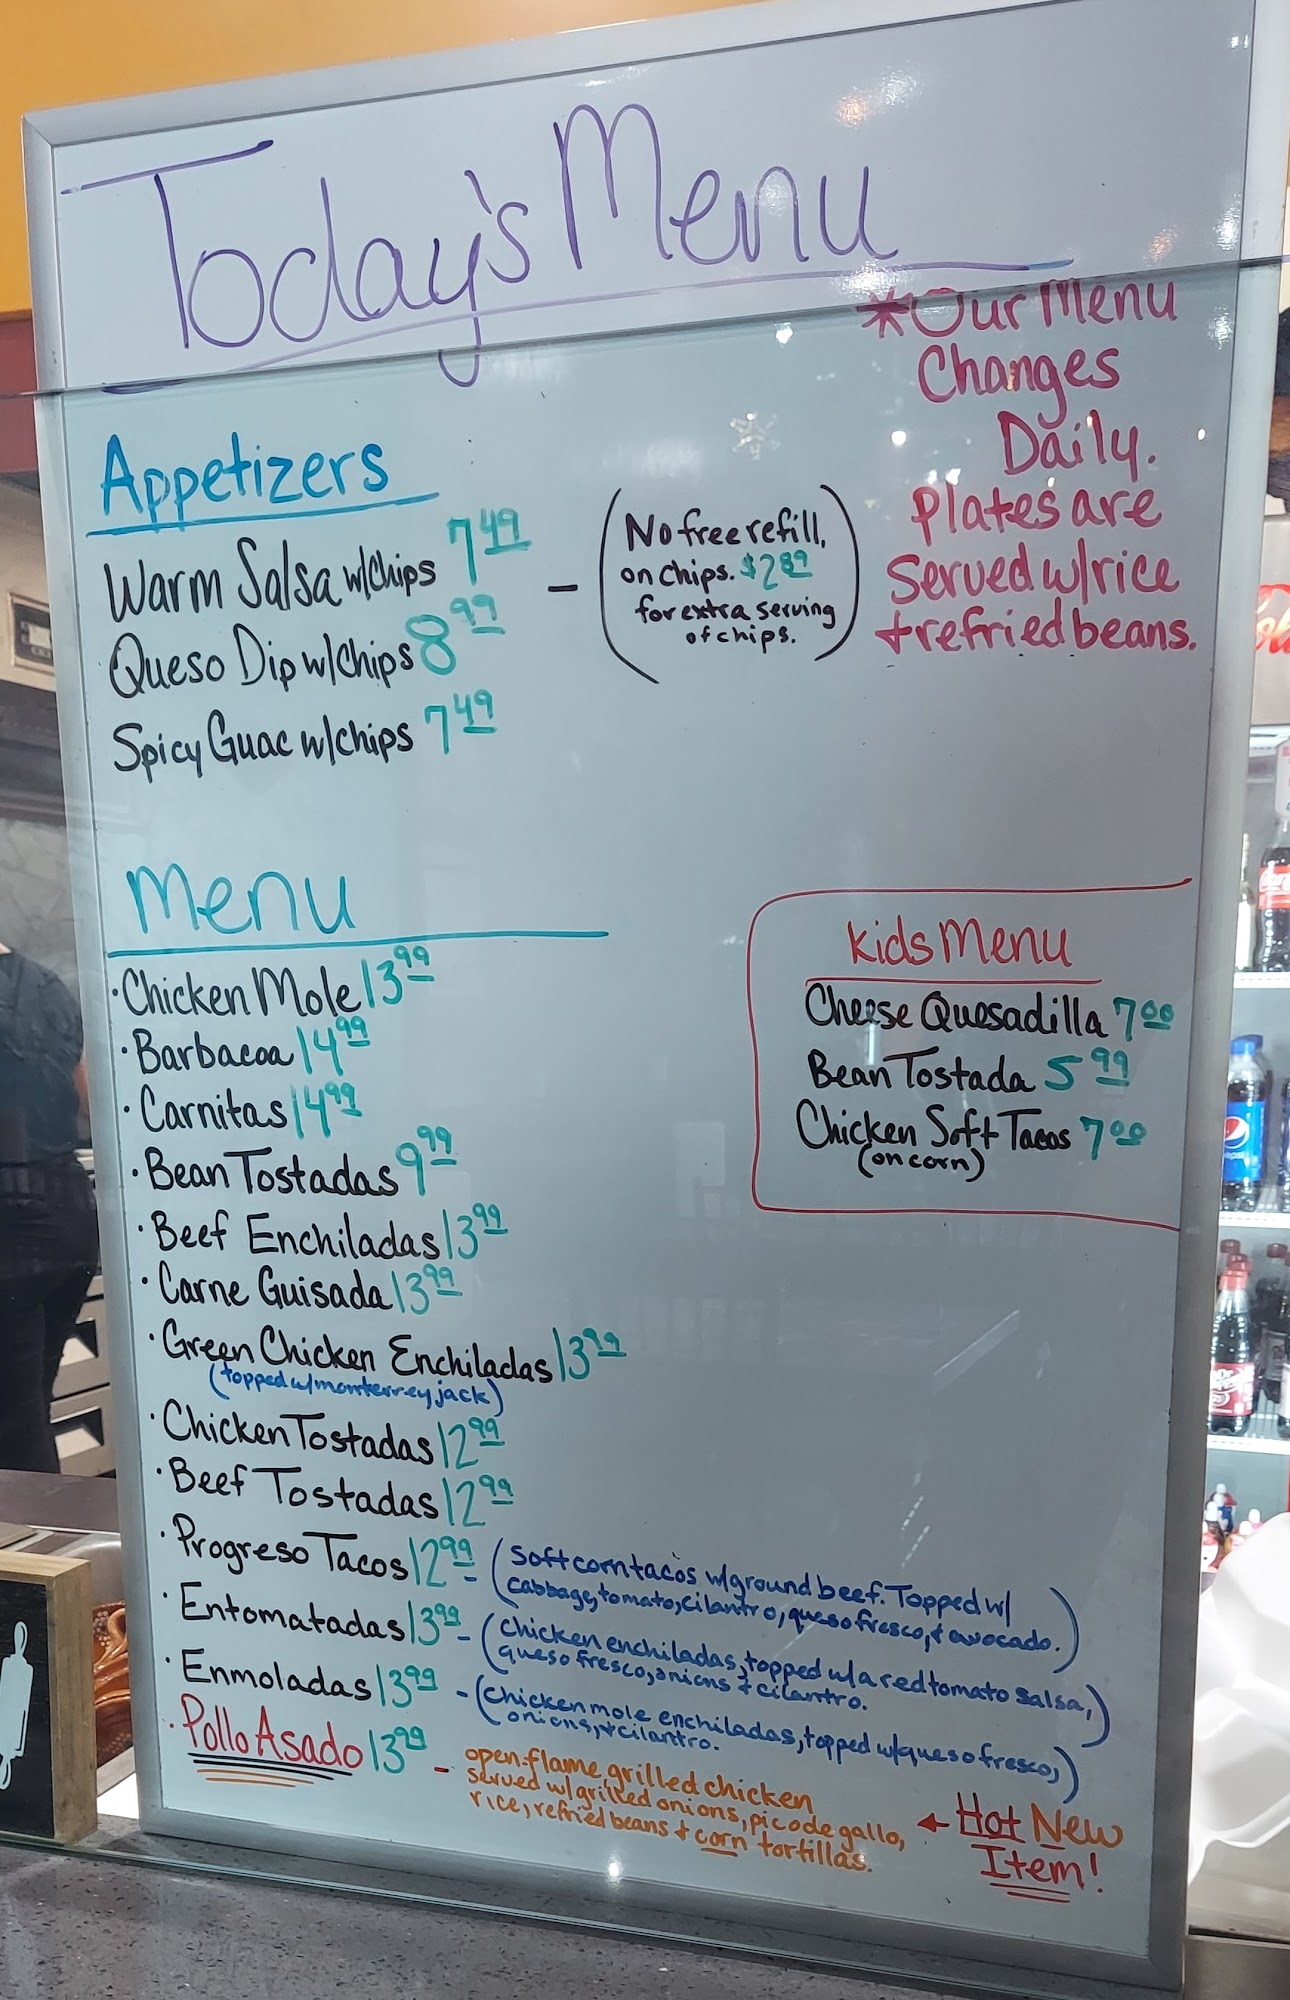 Today's Menu
*Our Menu
Changes
Daily.
Plates are
Served w/rice
+refried beans.
Appetizers
Warm Salsa w/chips 7 49
- (No free refill,
on chips. $2 89
for extra serving
of chips.)
Queso Dip w/chips 8 99
Spicy Guac w/chips 7 49
Menu
·Chicken Mole 13 99
·Barbacoa 14 99
·Carnitas 14 99
·Bean Tostadas 9 99
·Beef Enchiladas 13 99
·Carne Guisada 13 99
·Green Chicken Enchiladas 13 99
(topped w/monterrey jack)
·Chicken Tostadas 12 99
·Beef Tostadas 12 99
·Progreso Tacos 12 99 - (soft corn tacos w/ground beef. Topped w/
cabbage, tomato, cilantro, queso fresco, + avocado.)
·Entomatadas 13 99 - (chicken enchiladas, topped w/a red tomato salsa,
queso fresco, onions + cilantro.)
·Enmoladas 13 99 - (chicken mole enchiladas, topped w/queso fresco,
onions, + cilantro.)
·Pollo Asado 13 99 - open-flame grilled chicken
served w/grilled onions, pico de gallo,
rice, refried beans + corn tortillas.
← Hot New
Item!
Kids Menu
Cheese Quesadilla 7 00
Bean Tostada 5 99
Chicken Soft Tacos 7 00
(on corn)